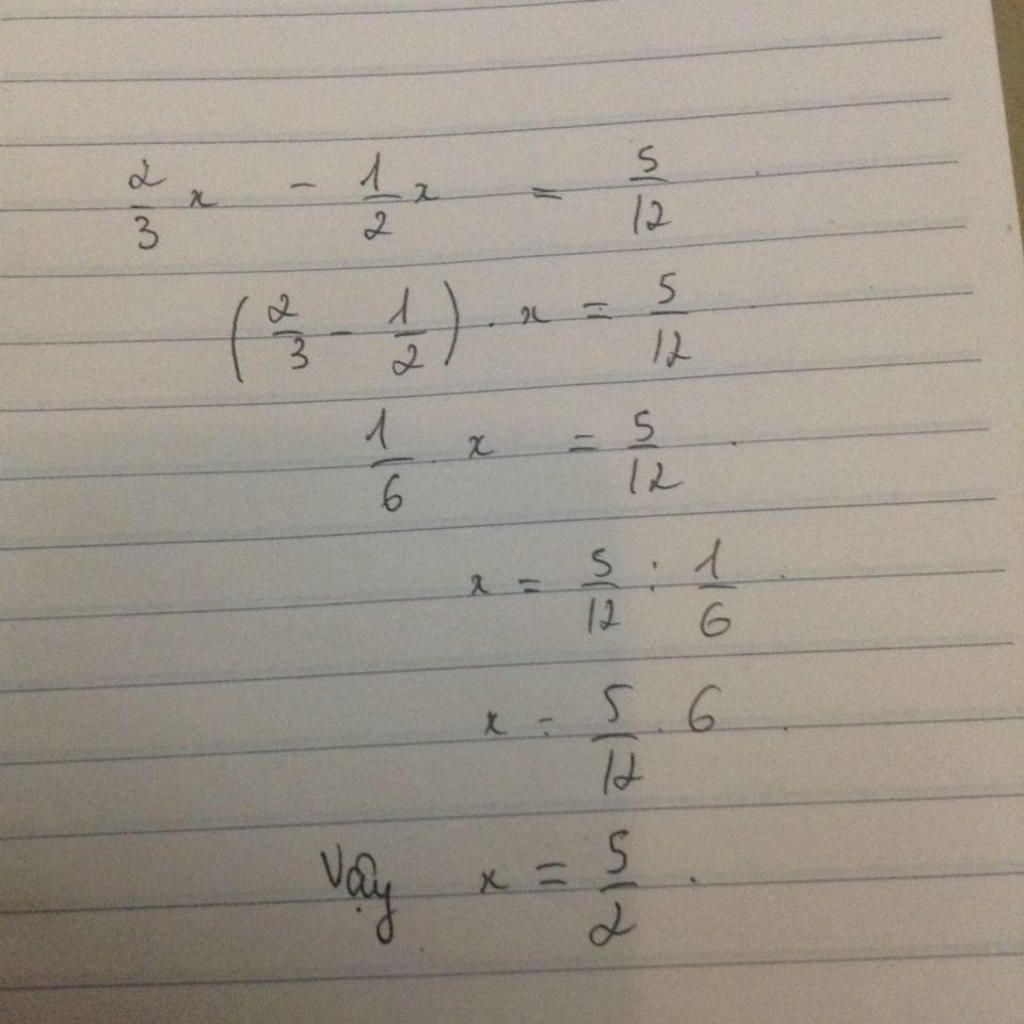 2/3 x - 1/2 x = 5/12
(2/3 - 1/2) . x = 5/12
1/6 x = 5/12
x = 5/12 : 1/6
x = 5/12 . 6
Vậy x = 5/2 .